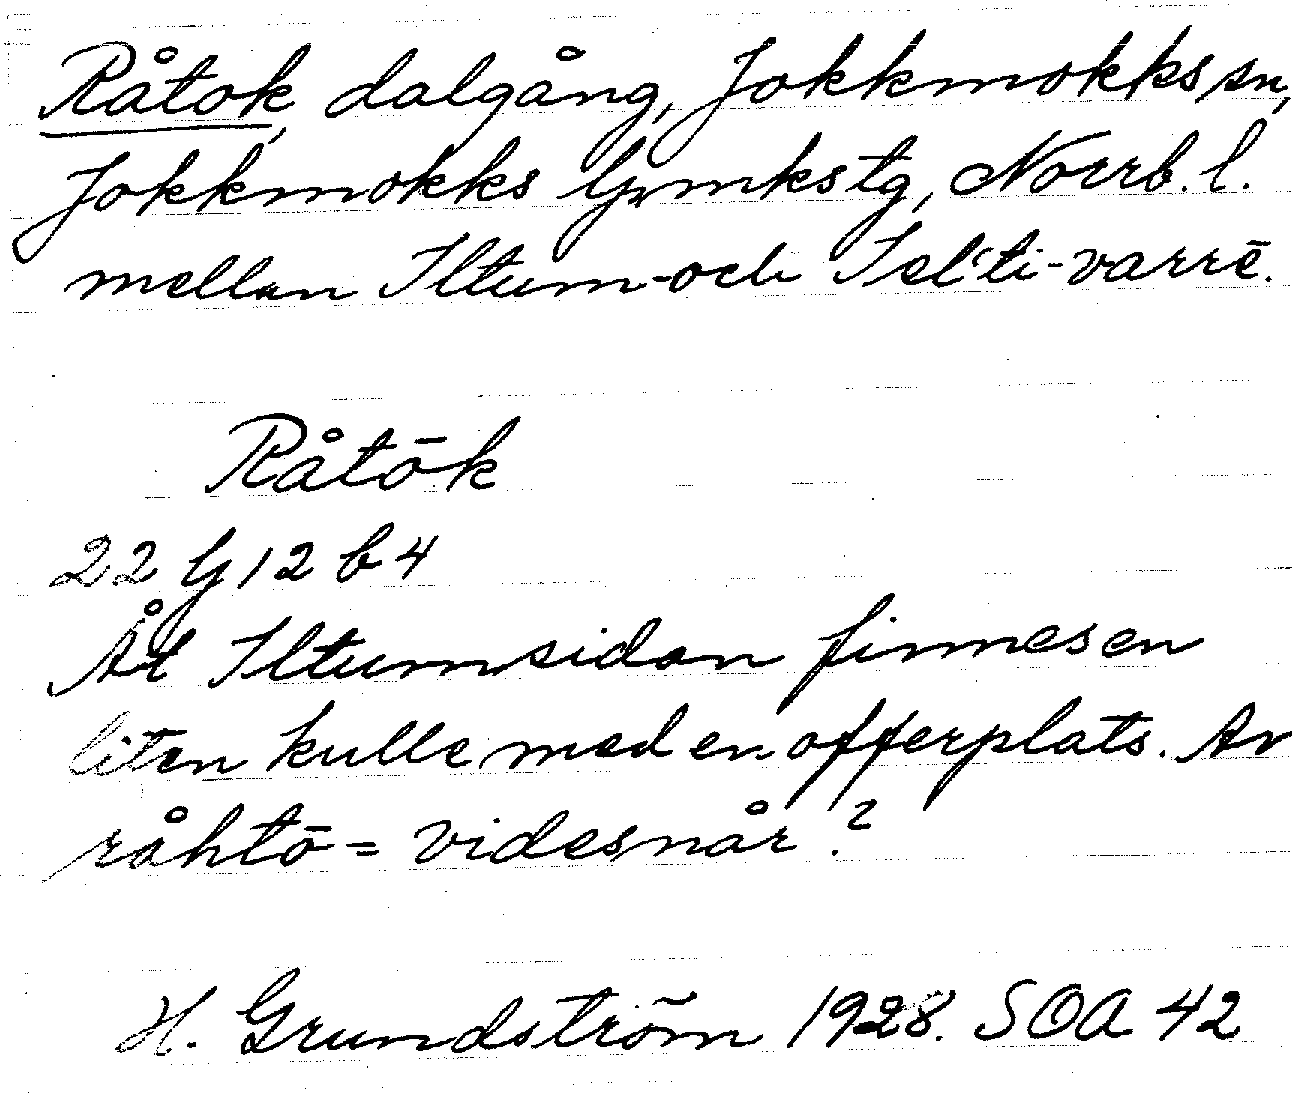 Råtok, dalgång, Jokkmokks sn,
Jokkmokks lpmkstg, Norrb. l.
mellan Iltum- och Sel'ti-varrē.
Råtōk
22 G 12 b 4
Åt Iltumsidan finnes en
liten kulle med en offerplats. Av
råhtō = videsnår?
H. Grundström 1928. SOA 42